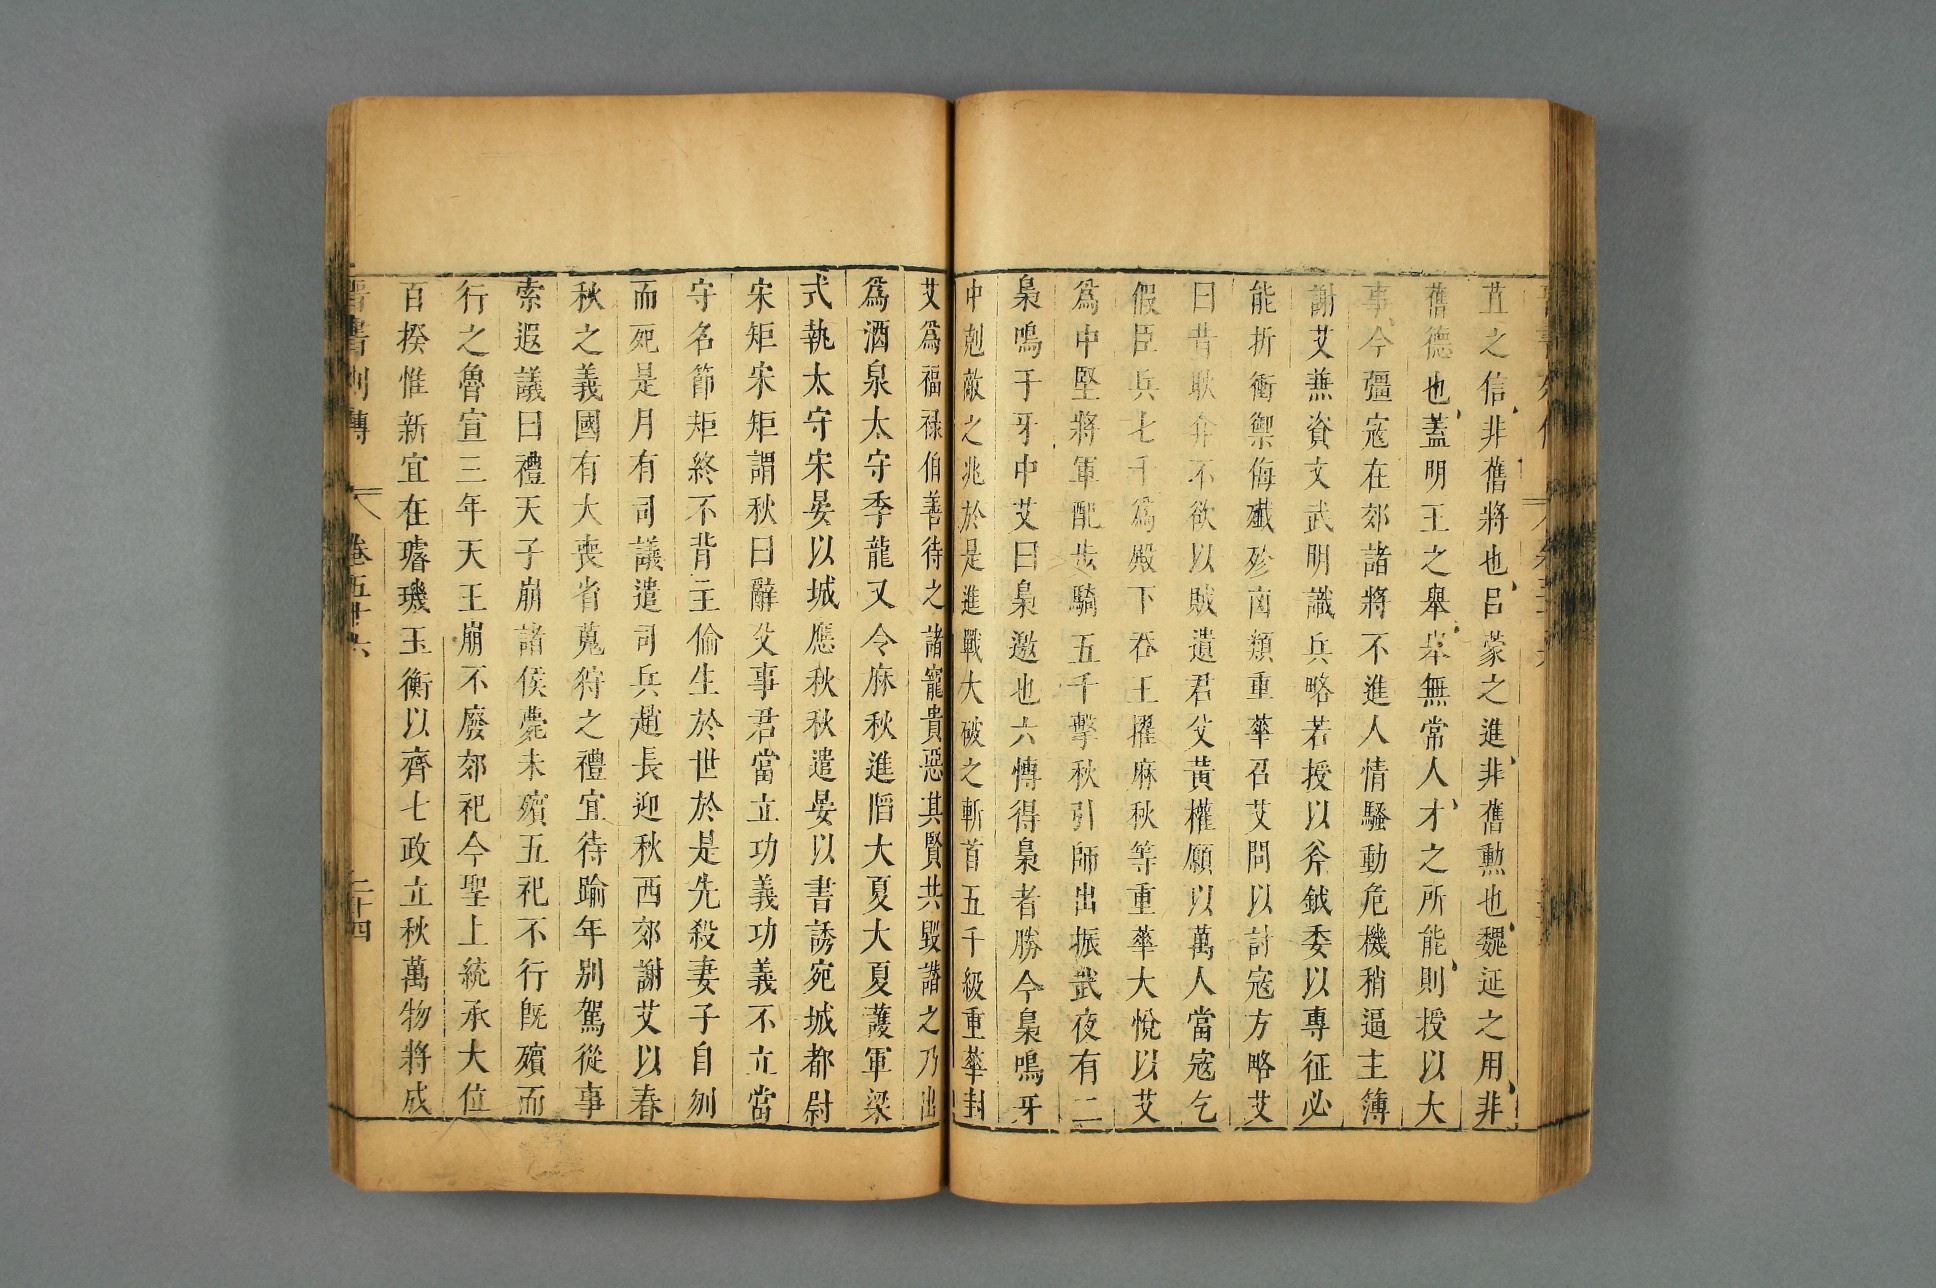 苴之信非舊將也呂蒙之進非舊勲也魏延之用非
舊德也蓋明王之舉舉無常人才之所能則授以大
事今彊寇在郊諸將不進人情騷動危機稍逼主簿
謝艾兼資文武明識兵略若授以斧鉞委以專征必
能折衝禦侮殲殄凶類重華召艾問以討寇方略艾
曰昔耿弇不欲以賊遺君父黃權願以萬人當寇乞
假臣兵七千爲殿下吞王擢麻秋等重華大悅以艾
爲中堅將軍配步騎五千擊秋引師出振武夜有二
梟鳴于牙中艾曰梟邀也六博得梟者勝今梟鳴牙
中剋敵之兆於是進戰大破之斬首五千級重華封
艾爲福祿伯善待之諸寵貴惡其賢共毀譖之乃出
爲酒泉太守季龍又令麻秋進陷大夏大夏護軍梁
式執太守宋晏以城應秋秋遣晏以書誘宛城都尉
宋矩宋矩謂秋曰辭父事君當立功義功義不立當
守名節矩終不背主偷生於世於是先殺妻子自刎
而死是月有司議遣司兵趙長迎秋西郊謝艾以春
秋之義國有大喪省蒐狩之禮宜待踰年别駕從事
索遐議曰禮天子崩諸侯薨未殯五祀不行旣殯而
行之魯宣三年天王崩不廢郊祀今聖上統承大位
百揆惟新宜在璿璣玉衡以齊七政立秋萬物將成
晉書列傳 卷五十六 二十四